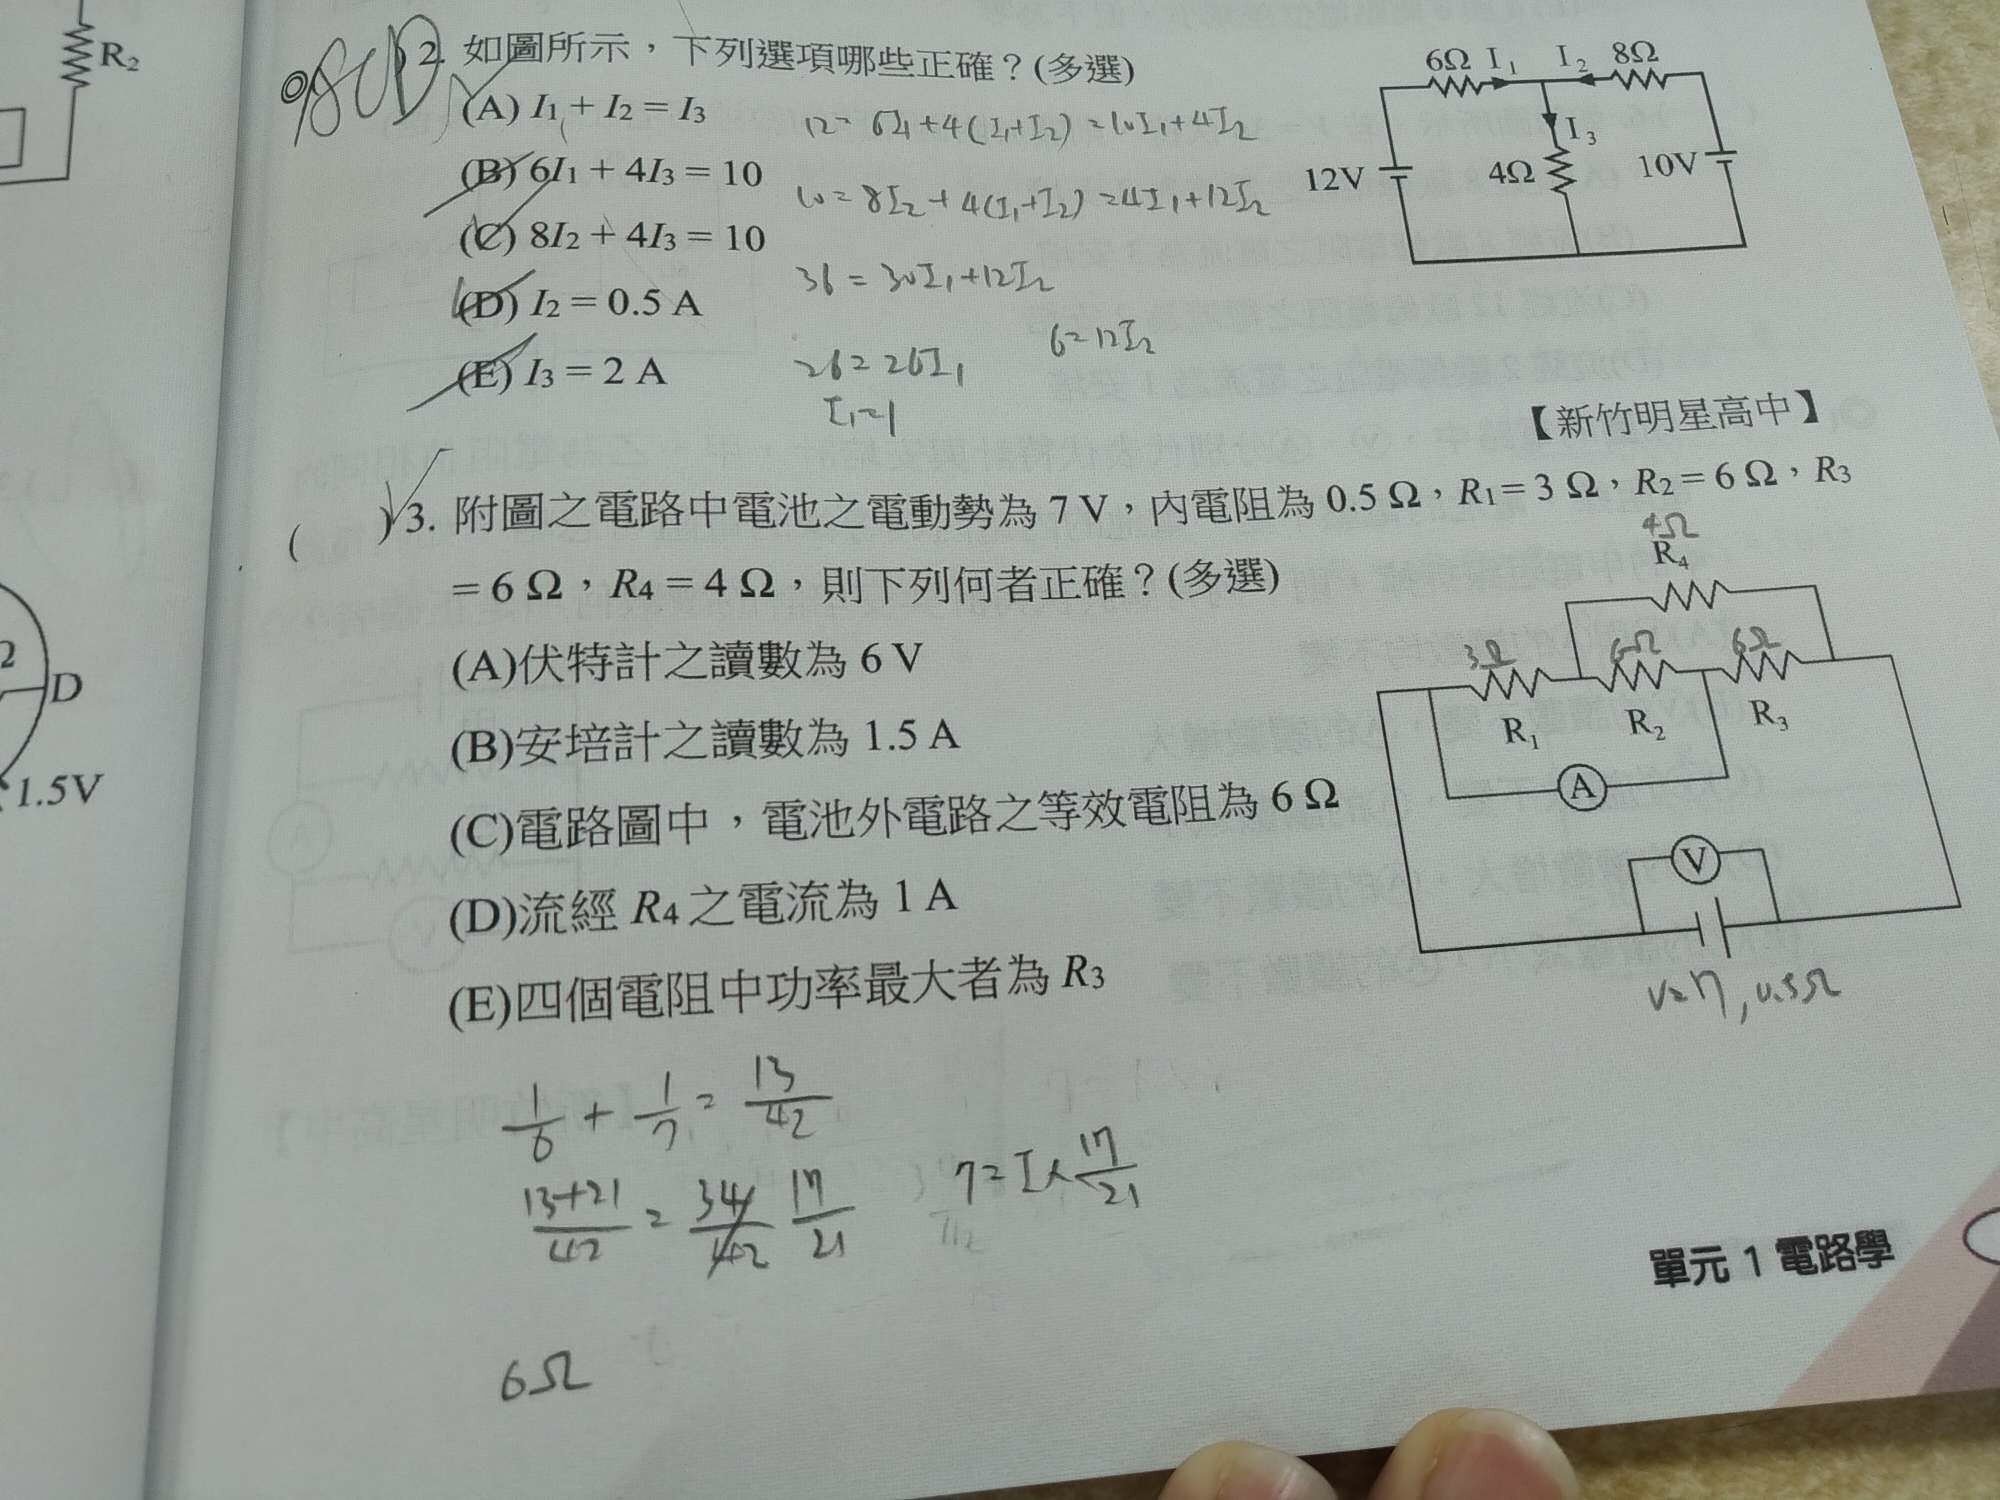 R₂
2
D
1.5V
2. 如圖所示，下列選項哪些正確？(多選)
(A) I₁ + I₂ = I₃
(B) 6I₁ + 4I₃ = 10
(C) 8I₂ + 4I₃ = 10
(D) I₂ = 0.5 A
(E) I₃ = 2 A
12= 6I₁+4(I₁+I₂) =10I₁+4I₂
10=8I₂+4(I₁+I₂) =4I₁+12I₂
36 = 30I₁+12I₂
6=12I₂
26=26I₁
I₁=1
6Ω I₁ I₂ 8Ω
I₃
12V 4Ω 10V
【新竹明星高中】
( )3. 附圖之電路中電池之電動勢為 7 V，內電阻為 0.5 Ω，R₁= 3 Ω，R₂= 6 Ω，R₃
= 6 Ω，R₄ = 4 Ω，則下列何者正確？(多選)
(A)伏特計之讀數為 6 V
(B)安培計之讀數為 1.5 A
(C)電路圖中，電池外電路之等效電阻為 6 Ω
(D)流經 R₄之電流為 1 A
(E)四個電阻中功率最大者為 R₃
4Ω
R₄
3Ω 6Ω 6Ω
R₁ R₂ R₃
A
V
V=7, 0.5Ω
1/6 + 1/7 = 13/42
13+21/42 = 34/42 17/21
7=I× 17/21
6Ω
單元 1 電路學